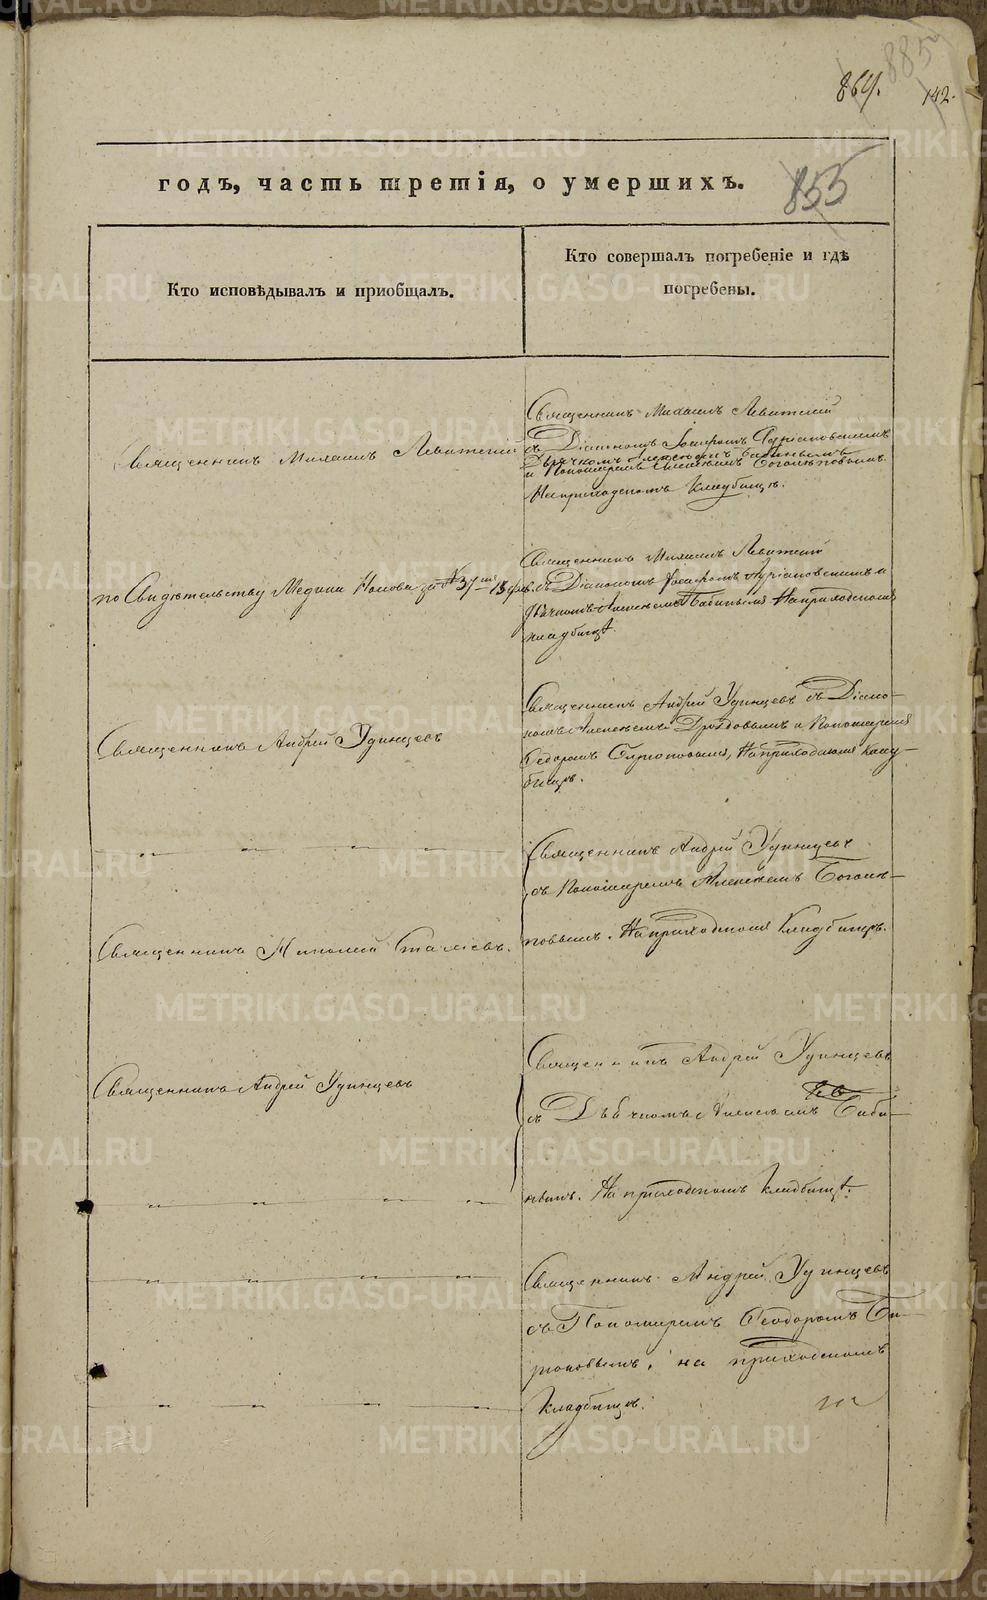 885
864.
142.
годъ, часть третія, о умершихъ.
855
Кто исповѣдывалъ и приобщалъ.
Кто совершалъ погребеніе и гдѣ
погребены.
Священникъ Михаилъ Левитскій
Священникъ Михаилъ Левитскій
съ Діакономъ Іосифомъ Адріановскимъ
Дьячкомъ Алексѣемъ Бабинымъ
и Пономаремъ Алексѣемъ Боголѣповымъ.
На приходскомъ кладбищѣ.
по Свидѣтельству Медика Носова за № 37
Священникъ Михаилъ Левитскій
съ Діакономъ Іосифомъ Адріановскимъ и
Дьячкомъ Алексѣемъ Бабинымъ На приходскомъ
кладбищѣ.
Священникъ Андрей Удинцевъ
Священникъ Андрей Удинцевъ съ Діако-
номъ Алексѣемъ Дроздовымъ и Пономаремъ
Ѳедоромъ На приходскомъ клад-
бищѣ.
Священникъ Андрей Удинцевъ
съ Пономаремъ Алексѣемъ Боголѣ-
Священникъ Николай
повымъ. На приходскомъ Кладбищѣ.
Священникъ Андрей Удинцевъ
Священникъ Андрей Удинцевъ
съ Дьячкомъ Алексѣемъ Баби-
нымъ. На приходскомъ кладбищѣ.
Священникъ Андрей Удинцевъ
съ Пономаремъ Ѳеодоромъ
на приходскомъ
Кладбищѣ.
METRIKI.GASO-URAL.RU